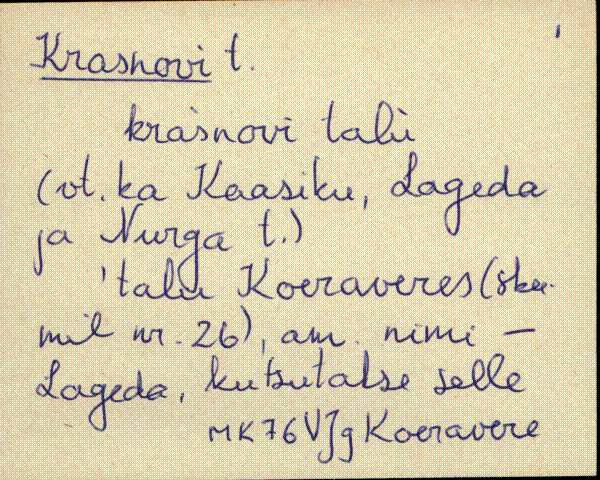 Krasnovi t.
kràsnovi talù
(vt. ka Kaasiku, Lageda
ja Nurga t.)
'talu Koeraveres (sku-
mil nr. 26), am. nimi —
Lageda, kutsutakse selle
MK76 VJg Koeravere